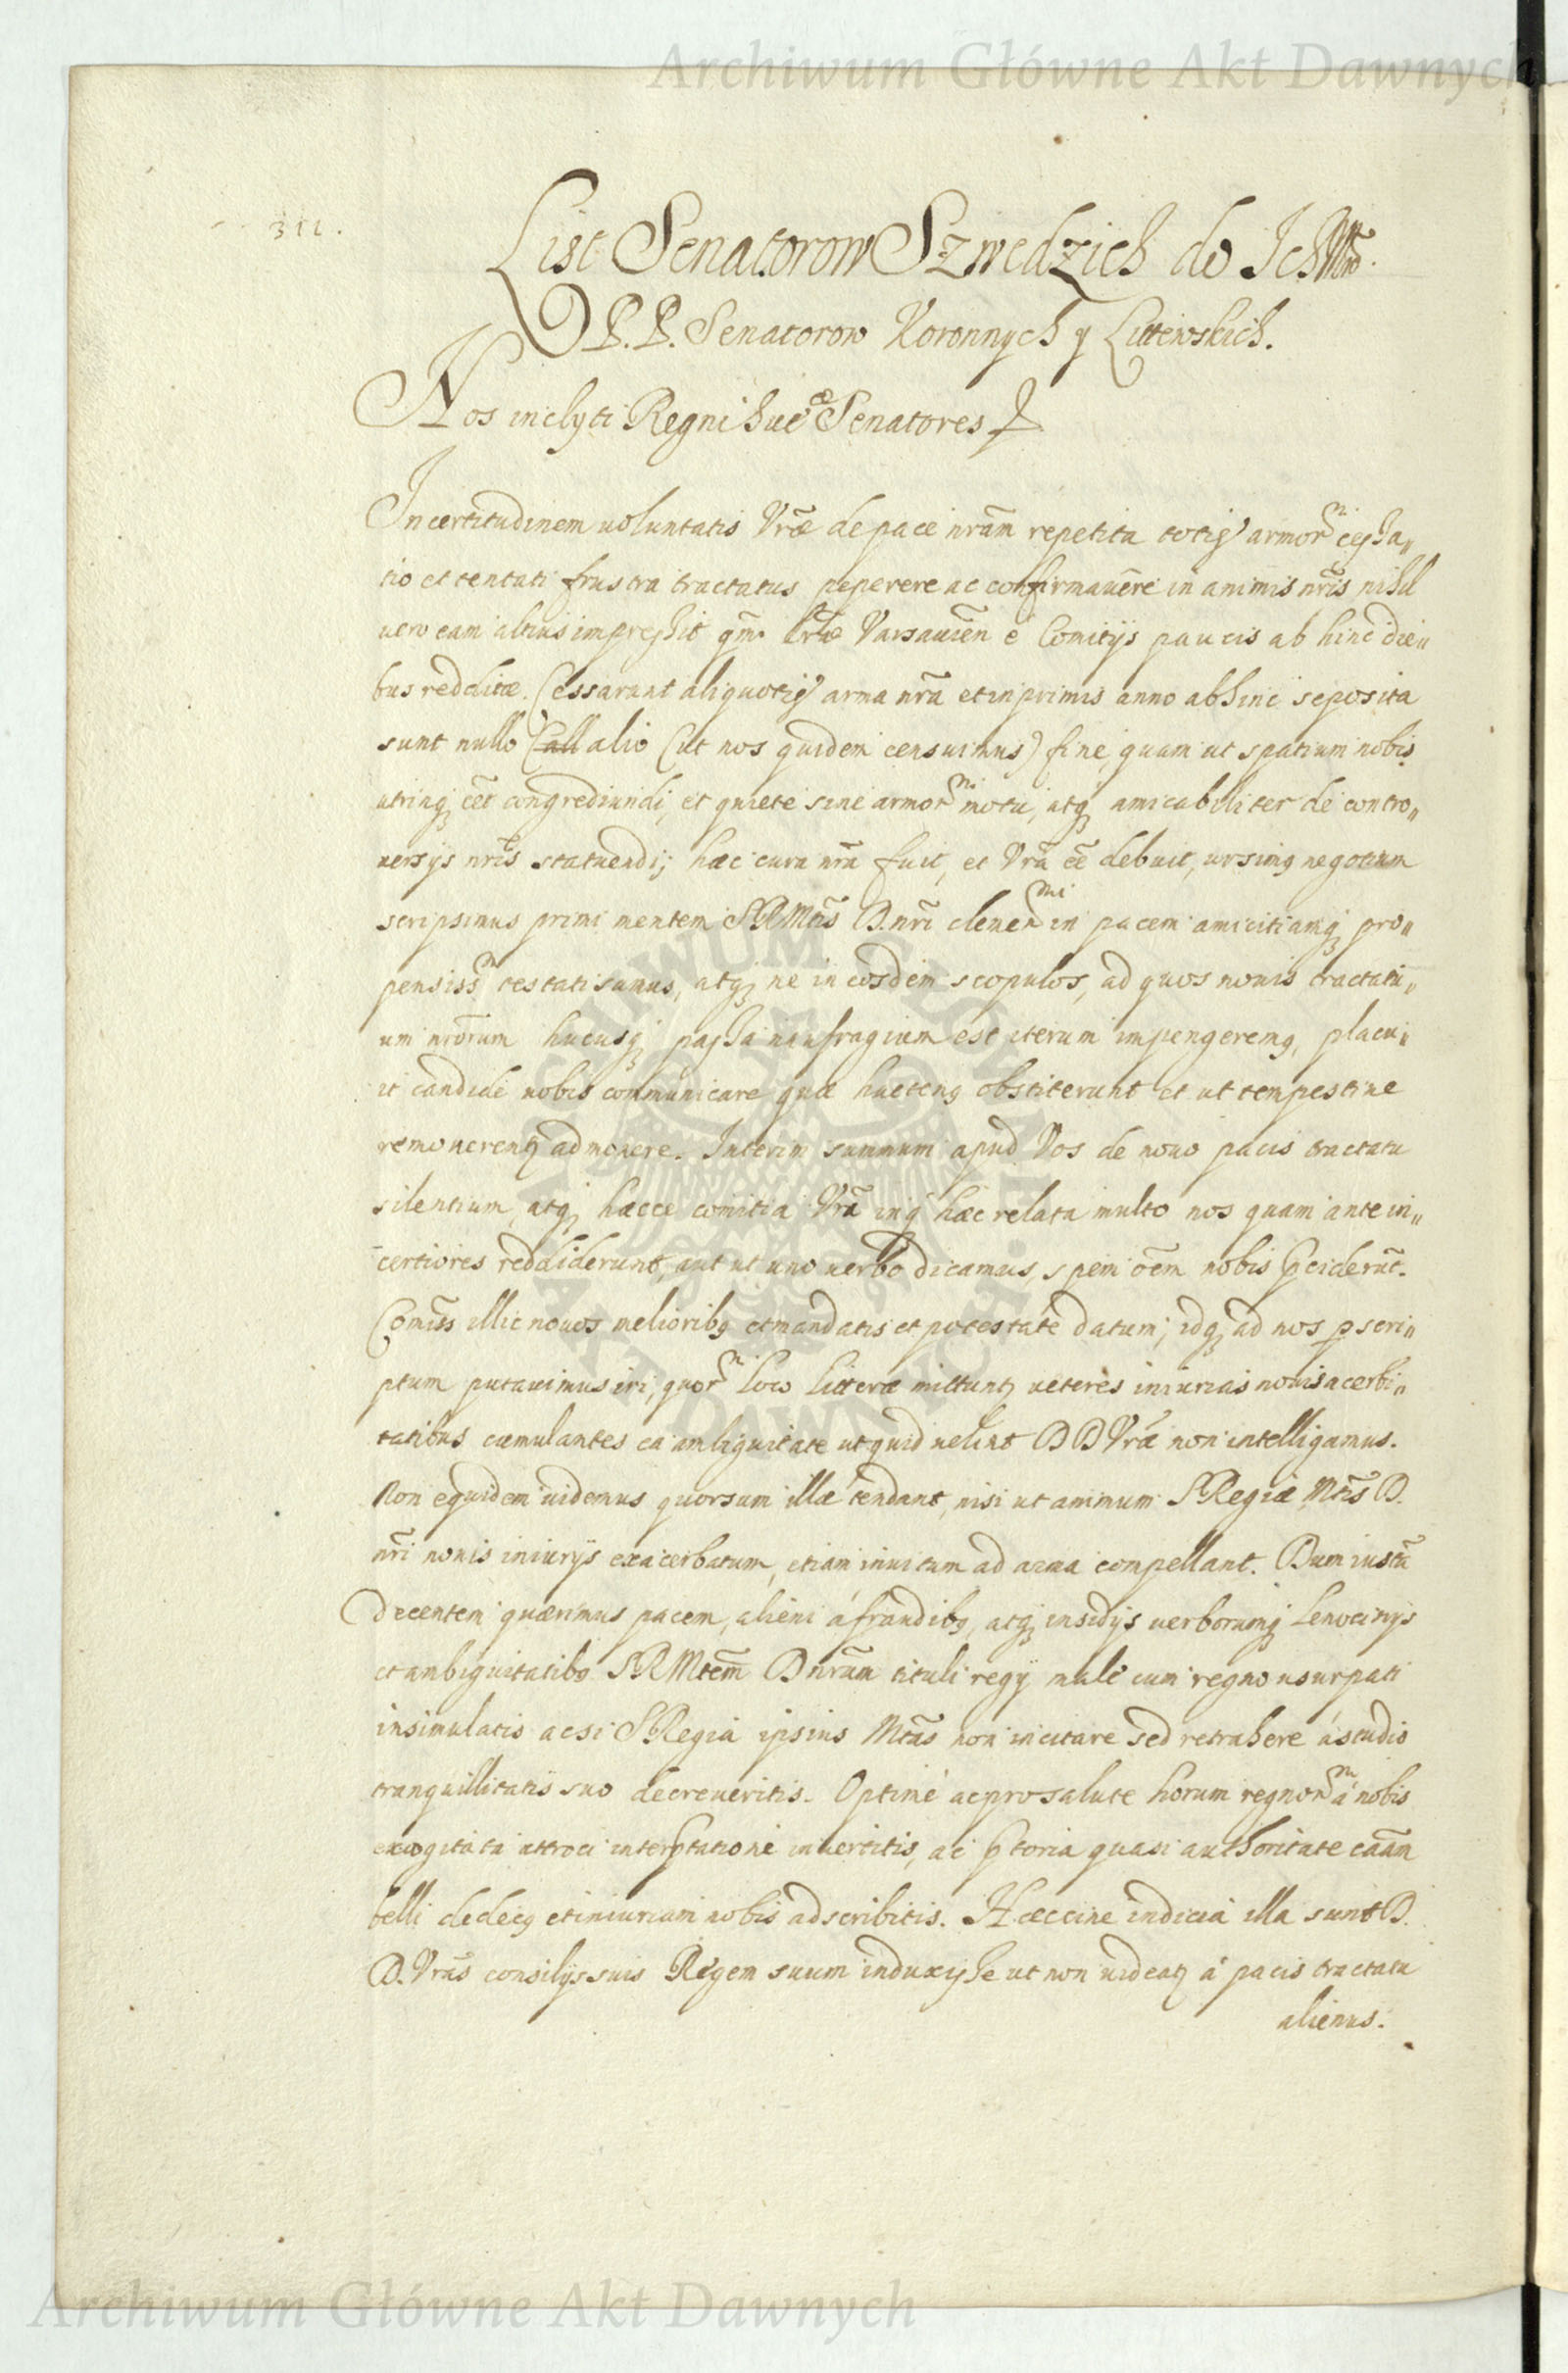 Archiwum Główne Akt Dawnych
311.
List Senatorow Szwedzich do Ich Mm̃.
P. P. Senatorow Koronnych y Littewskich.
Nos inclyti Regni Sueæ Senatores
Incertitudinem uoluntatis Vr̃æ de pace nr̃am repetita toties armorm ceßa„
tio et tentati frustra tractatus peperere ac confirmauẽre in animis nr̃is nihil
uero eam altius impreßit qm̃ lr̃æ Varsauien̄ e Comitijs paucis ab hinc die„
bus redditæ. Cessarunt aliquoties arma nr̃a et inprimis anno abhinc seposita
sunt nullo alio (ut nos quidem censuimus) fine, quam ut spatium nobis
utrinq; eẽt congrediundi, et quiete sine armorm motu, atq; amicabiliter de contro„
uersijs nr̃is statuendi; hæc cura nr̃a fuit, et Vr̃a eẽ debuit, negotium
scripsimus primi mentem SRMtis D. nr̃i clemenmi in pacem amicitiamq; pro„
pensissm testati sumus, atq; ne in eosdem scopulos, ad quos nouis tractatu„
um nr̃orum hucusq; paßa naufragium est iterum impengeremꝰ, placu„
it candide uobis communicare quæ huctenꝰ obstiterunt et ut tempestiue
remouerentꝛ admouere. Interim summum apud Vos de nouo pacis tractatu
silentium, atq; hæcce comitia Vr̃a inq́ hæc relata multo nos quam ante in„
certiores reddiderunt, aut ut uno uerbo dicamus, spem oẽm nobis ꝑciderũt.
Comiss̃ illic nouos melioribꝰ et mandatis et potestate datum; idq; ad nos ꝑscri„
ptum putauimus iri, quorm loco litteræ mittuntꝛ ueteres iniurias nouis acerbi„
tatibus cumulantes ea ambiguitate ut quid uelint D D Vr̃æ non intelligamus.
Non equidem uidemus quorsum illæ tendant, nisi ut animum SRegiæ Mtis D.
nr̃i nouis iniurijs exacerbatum, etiam inuitum ad arma compellant. Dum iustã
Decentem quærimus pacem, alieni á fraudibꝰ, atq; insidijs uerborumq; lenocinijs
et ambiguitatibꝰ SRMtem D nr̃um tituli regij male cum regno usurpati
insimulatis acsi SRegia ipsius Mtas non incitare sed retrahere á studio
tranquillitatis suo decreueritis. Optime ac pro salute horum regnorm á nobis
excogitata attroci interp̃tatione inuertitis, ac p̃toria quasi authoritate cãam
belli dedecꝰ et iniuriam nobis adscribitis. Hæccine indicia illa sunt D.
D. Vr̃as consilijs suis Regem suum induxiße ut non uideatꝛ á pacis tractatu
alienus.
Archiwum Główne Akt Dawnych